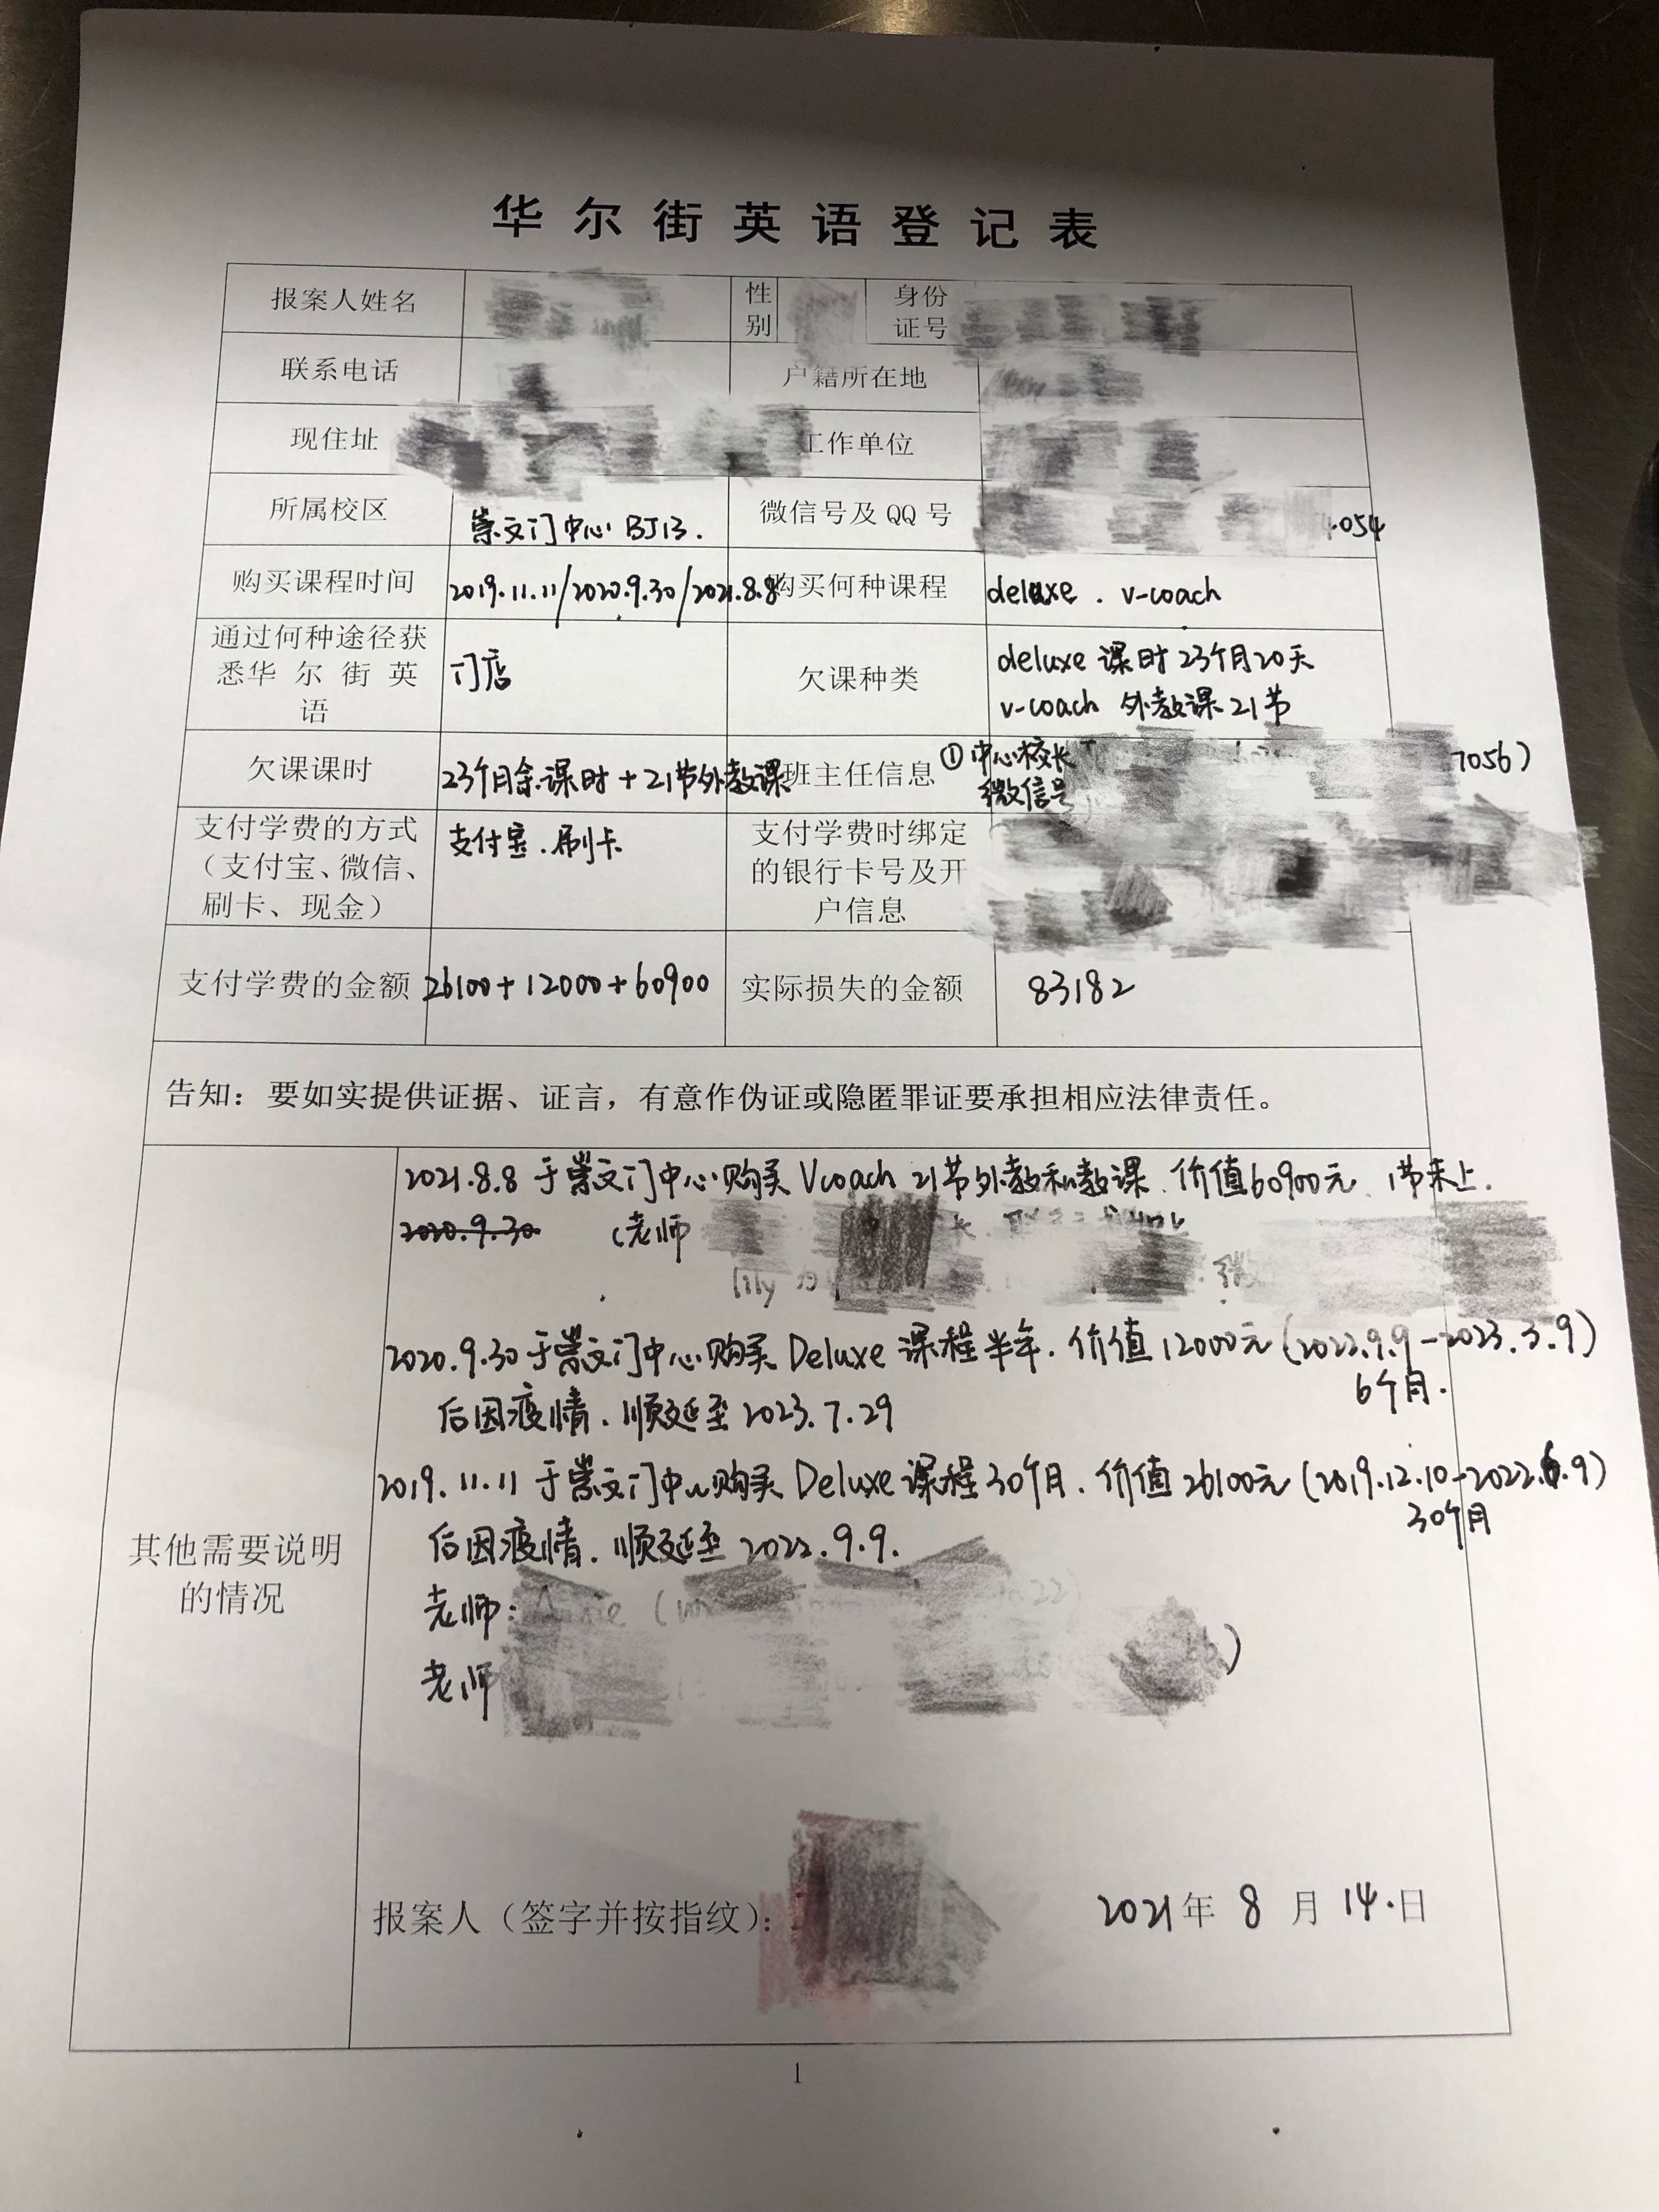 华尔街英语登记表
报案人姓名 性别 身份证号
联系电话 户籍所在地
现住址 工作单位
所属校区 崇文门中心 BJ13. 微信号及QQ号 4054
购买课程时间 2019.11.11/2020.9.30/2021.8.8 购买何种课程 deluxe . v-coach
通过何种途径获
悉华尔街英
语
门店
欠课种类
deluxe 课时23个月20天
v-coach 外教课21节
欠课课时 23个月余课时+21节外教课 班主任信息 ①中心校长 7056)
微信号
支付学费的方式
(支付宝、微信、
刷卡、现金)
支付宝.刷卡
支付学费时绑定
的银行卡号及开
户信息
支付学费的金额 26100+12000+60900 实际损失的金额 83182
告知：要如实提供证据、证言，有意作伪证或隐匿罪证要承担相应法律责任。
其他需要说明
的情况
2021.8.8 于崇文门中心购买 Vcoach 21节外教私教课. 价值60900元. 1节未上.
2020.9.30 (老师
lily
2020.9.30于崇文门中心购买 Deluxe 课程半年. 价值12000元(2022.9.9-2023.3.9)
6个月.
后因疫情. 顺延至2023.7.29
2019.11.11于崇文门中心购买 Deluxe 课程30个月. 价值26100元(2019.12.10-2022.6.9)
30个月
后因疫情. 顺延至2022.9.9.
老师:
老师
报案人(签字并按指纹): 2021年8月14.日
1